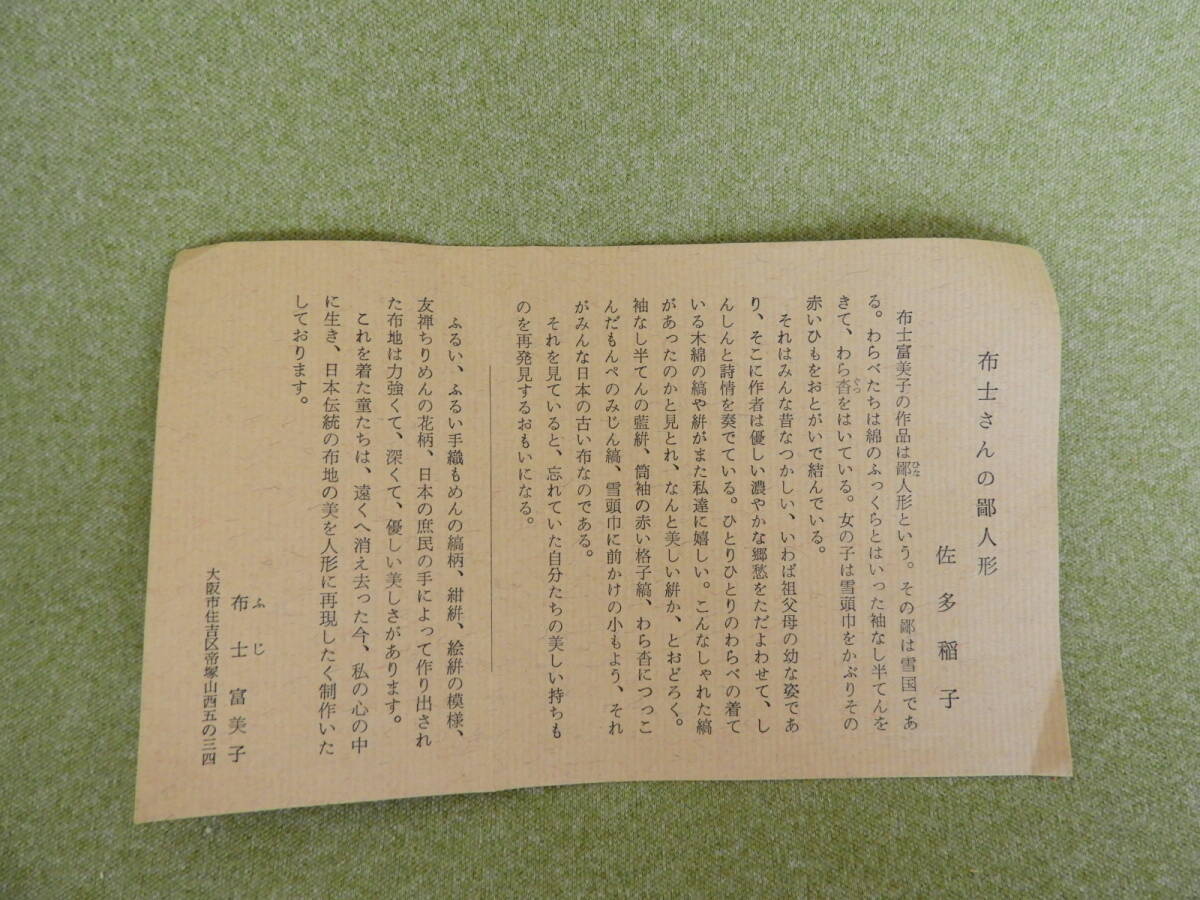 布士さんの鄙人形
佐多稲子
布士富美子の作品は鄙人形という。その鄙は雪国であ
る。わらべたちは綿のふっくらとはいった袖なし半てんを
きて、わら沓をはいている。女の子は雪頭巾をかぶりその
赤いひもをおとがいで結んでいる。
それはみんな昔なつかしい、いわば祖父母の幼な姿であ
り、そこに作者は優しい濃やかな郷愁をただよわせて、し
んしんと詩情を奏でている。ひとりひとりのわらべの着て
いる木綿の縞や絣がまた私達に嬉しい。こんなしゃれた縞
があったのかと見とれ、なんと美しい絣か、とおどろく。
袖なし半てんの藍絣、筒袖の赤い格子縞、わら沓につっこ
んだもんぺのみじん縞、雪頭巾に前かけの小もよう、それ
がみんな日本の古い布なのである。
それを見ていると、忘れていた自分たちの美しい持ちも
のを再発見するおもいになる。
ふるい、ふるい手織もめんの縞柄、紺絣、絵絣の模様、
友禅ちりめんの花柄、日本の庶民の手によって作り出され
た布地は力強くて、深くて、優しい美しさがあります。
これを着た童たちは、遠くへ消え去った今、私の心の中
に生き、日本伝統の布地の美を人形に再現したく制作いた
しております。
布士富美子
大阪市住吉区帝塚山西五の三四